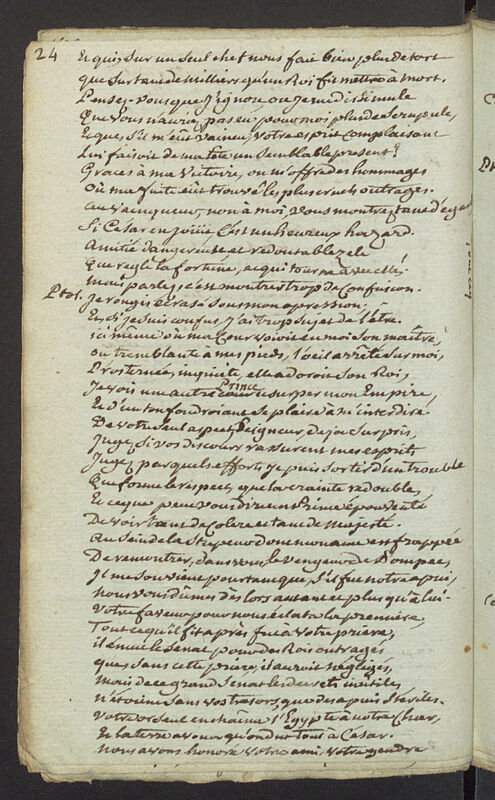 24
Et qui, Sur un Seul chef nous fait bien plus de tort
que Sur tant de Milliers qu'un Roi fit mettre a mort.
Pensez-vous que J'ignore ou Je me dissimule
Que vous n'auriez pas eu pour moi plus de Scrupule,
Et que, S'il m'eut vaincu, votre esprit Complaisant
Lui faisoit de ma tête un Semblable present?
Graces à ma Victoire, on m'offre des hommages
Où ma fuite eût trouvé les plus cruels outrages.
Au Vainqueur, non à moi, vous montrez tant d'égard
Si César en jouit C'est un heureux hazard.
Amitié dangereuse et redoutable zele
Que regle la fortune, et qui tourne avec elle!
Mais parlez, c'est montrer trop de Confusion.
Ptol. Je rougis écrasé Sous mon opression.
Et, Si je Suis confus, J'ai trop Sujet de l'être.
ici même où ma Cour voioit en moi Son maître,
où tremblante à mes pieds, l'oeil arrêté Sur moi,
Prosternée, inquiete, elle adoroit Son Roi,
Je vois un autre Prince usurper mon Empire,
Et d'un ton foudroiant Se plaire à m'interdire
De votre Seul aspect, Seigneur, deja Surpris,
Jugez Si vos discours rassurent mes esprits
Jugez par quels efforts Je puis Sortir d'un trouble
Que forme le respect, que la crainte redouble,
Et ce que peut vous dire un Prince épouvanté
De voir tant de Colere et tant de Majesté.
Au Sein de la Stupeur dont mon ame est frappée
De rencontrer, dans vous, le vengeur de Pompée,
Il me Souvient pourtant que, S'il fut notre apui,
nous vous dûmes dès lors autant et plus qu'à lui.
Votre faveur pour nous éclata la premiere,
Tout ce qu'il fit après fut à Votre priere,
il émut le Senat pour des Rois outragés
que, Sans cette priere, il auroit négligés,
mais de ce grand Senat les decrets inutiles
n'étoient Sans vos tresors, que des apuis Steriles.
Votre or Seul enchaine l'Egypte à notre Char,
Et la terre avoua qu'on dut tout à César.
Nous avons honoré votre ami, votre gendre